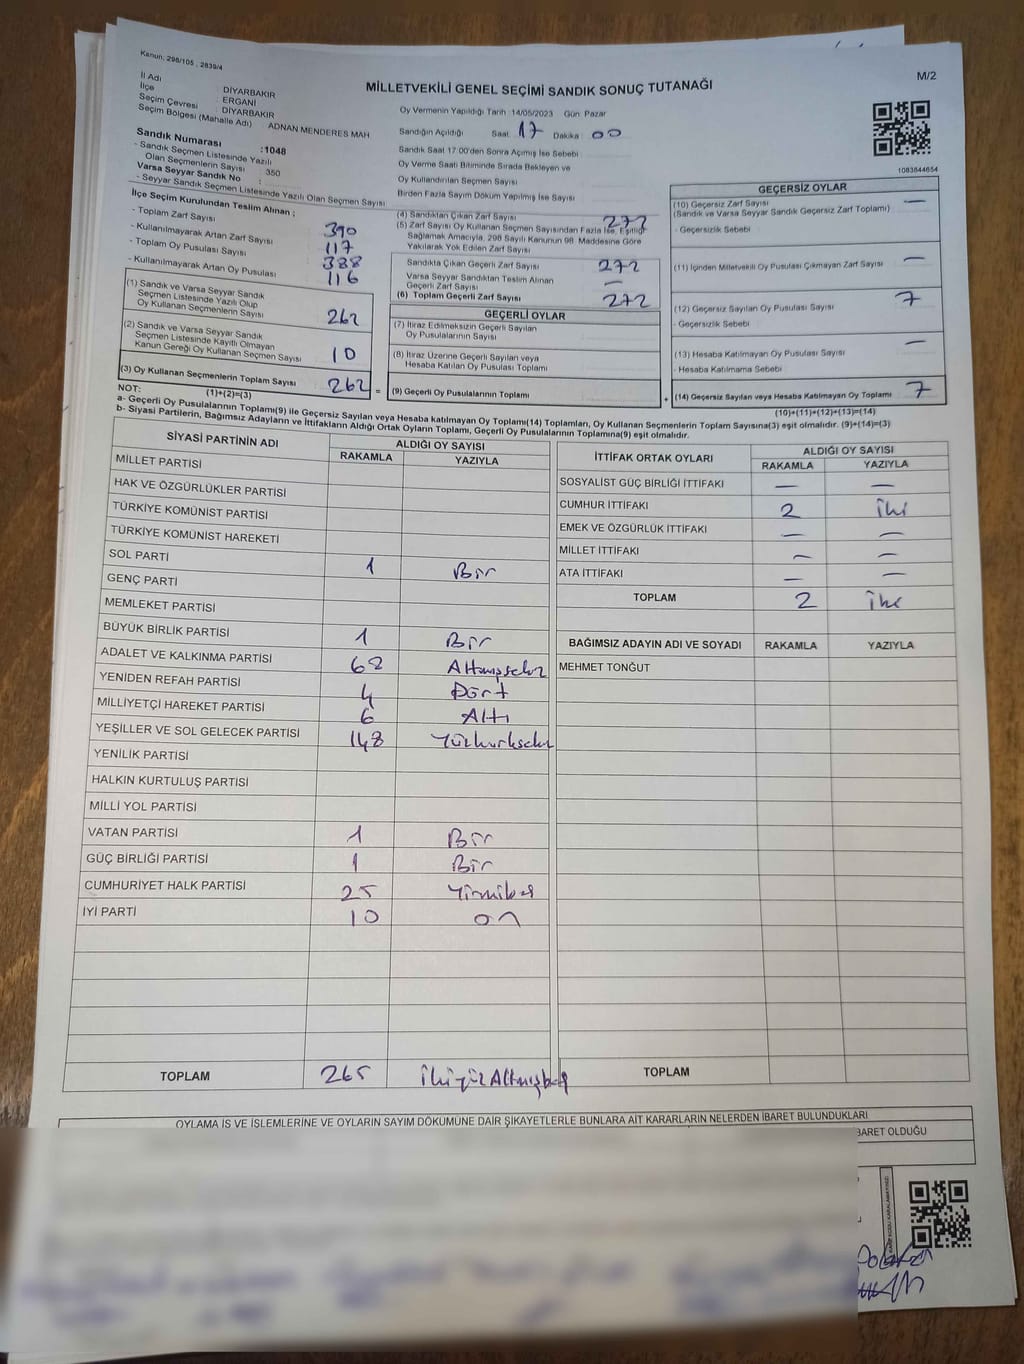 Kanun, 298/105 , 2839/4
MİLLETVEKİLİ GENEL SEÇİMİ SANDIK SONUÇ TUTANAĞI
M/2
İl Adı : DİYARBAKIR
İlçe : ERGANİ
Seçim Çevresi : DİYARBAKIR
Seçim Bölgesi (Mahalle Adı) ADNAN MENDERES MAH
Sandık Numarası :1048
- Sandık Seçmen Listesinde Yazılı
Olan Seçmenlerin Sayısı : 350
Varsa Seyyar Sandık No :
- Seyyar Sandık Seçmen Listesinde Yazılı Olan Seçmen Sayısı
Oy Vermenin Yapıldığı Tarih 14/05/2023 Gün Pazar
Sandığın Açıldığı Saat 17 Dakika 00
Sandık Saat 17:00'den Sonra Açımış İse Sebebi
Oy Verme Saati Bitiminde Sırada Bekleyen ve
Oy Kullandırılan Seçmen Sayısı
Birden Fazla Sayım Döküm Yapılmış İse Sayısı
1083844654
İlçe Seçim Kurulundan Teslim Alınan ;
- Toplam Zarf Sayısı 390
- Kullanılmayarak Artan Zarf Sayısı 117
- Toplam Oy Pusulası Sayısı 388
- Kullanılmayarak Artan Oy Pusulası 116
(1) Sandık ve Varsa Seyyar Sandık
Seçmen Listesinde Yazılı Olup
Oy Kullanan Seçmenlerin Sayısı 262
(2) Sandık ve Varsa Seyyar Sandık
Seçmen Listesinde Kayıtlı Olmayan
Kanun Gereği Oy Kullanan Seçmen Sayısı 10
(3) Oy Kullanan Seçmenlerin Toplam Sayısı 262 =
(1)+(2)=(3)
(4) Sandıktan Çıkan Zarf Sayısı 272
(5) Zarf Sayısı Oy Kullanan Seçmen Sayısından Fazla İse, Eşitliği
Sağlamak Amacıyla, 298 Sayılı Kanunun 98. Maddesine Göre
Yakılarak Yok Edilen Zarf Sayısı
Sandıkta Çıkan Geçerli Zarf Sayısı 272
Varsa Seyyar Sandıktan Teslim Alınan
Geçerli Zarf Sayısı —
(6) Toplam Geçerli Zarf Sayısı 272
GEÇERLİ OYLAR
(7) İtiraz Edilmeksizin Geçerli Sayılan
Oy Pusulalarının Sayısı
(8) İtiraz Üzerine Geçerli Sayılan veya
Hesaba Katılan Oy Pusulası Toplamı
(9) Geçerli Oy Pusulalarının Toplamı +
GEÇERSİZ OYLAR
(10) Geçersiz Zarf Sayısı —
(Sandık ve Varsa Seyyar Sandık Geçersiz Zarf Toplamı)
- Geçersizlik Sebebi
(11) İçinden Milletvekili Oy Pusulası Çıkmayan Zarf Sayısı —
(12) Geçersiz Sayılan Oy Pusulası Sayısı 7
- Geçersizlik Sebebi
(13) Hesaba Katılmayan Oy Pusulası Sayısı —
- Hesaba Katılmama Sebebi
(14) Geçersiz Sayılan veya Hesaba Katılmayan Oy Toplamı 7
(10)+(11)+(12)+(13)=(14)
NOT:
a- Geçerli Oy Pusulalarının Toplamı(9) ile Geçersiz Sayılan veya Hesaba katılmayan Oy Toplamı(14) Toplamları, Oy Kullanan Seçmenlerin Toplam Sayısına(3) eşit olmalıdır. (9)+(14)=(3)
b- Siyasi Partilerin, Bağımsız Adayların ve İttifakların Aldığı Ortak Oyların Toplamı, Geçerli Oy Pusulalarının Toplamına(9) eşit olmalıdır.
SİYASİ PARTİNİN ADI
ALDIĞI OY SAYISI
RAKAMLA YAZIYLA
MİLLET PARTİSİ
HAK VE ÖZGÜRLÜKLER PARTİSİ
TÜRKİYE KOMÜNİST PARTİSİ
TÜRKİYE KOMÜNİST HAREKETİ
SOL PARTİ 1 Bir
GENÇ PARTİ
MEMLEKET PARTİSİ
BÜYÜK BİRLİK PARTİSİ 1 Bir
ADALET VE KALKINMA PARTİSİ 68 Altmışsekiz
YENİDEN REFAH PARTİSİ 4 Dört
MİLLİYETÇİ HAREKET PARTİSİ 6 Altı
YEŞİLLER VE SOL GELECEK PARTİSİ 148 Yüzkırksekiz
YENİLİK PARTİSİ
HALKIN KURTULUŞ PARTİSİ
MİLLİ YOL PARTİSİ
VATAN PARTİSİ 1 Bir
GÜÇ BİRLİĞİ PARTİSİ 1 Bir
CUMHURİYET HALK PARTİSİ 25 Yirmibeş
İYİ PARTİ 10 on
TOPLAM 265 İkiyüzAltmışbeş
İTTİFAK ORTAK OYLARI
ALDIĞI OY SAYISI
RAKAMLA YAZIYLA
SOSYALİST GÜÇ BİRLİĞİ İTTİFAKI — —
CUMHUR İTTİFAKI 2 İki
EMEK VE ÖZGÜRLÜK İTTİFAKI — —
MİLLET İTTİFAKI — —
ATA İTTİFAKI — —
TOPLAM 2 İki
BAĞIMSIZ ADAYIN ADI VE SOYADI RAKAMLA YAZIYLA
MEHMET TONĞUT
TOPLAM
OYLAMA İŞ VE İŞLEMLERİNE VE OYLARIN SAYIM DÖKÜMÜNE DAİR ŞİKAYETLERLE BUNLARA AİT KARARLARIN NELERDEN İBARET BULUNDUKLARI
BARET OLDUĞU